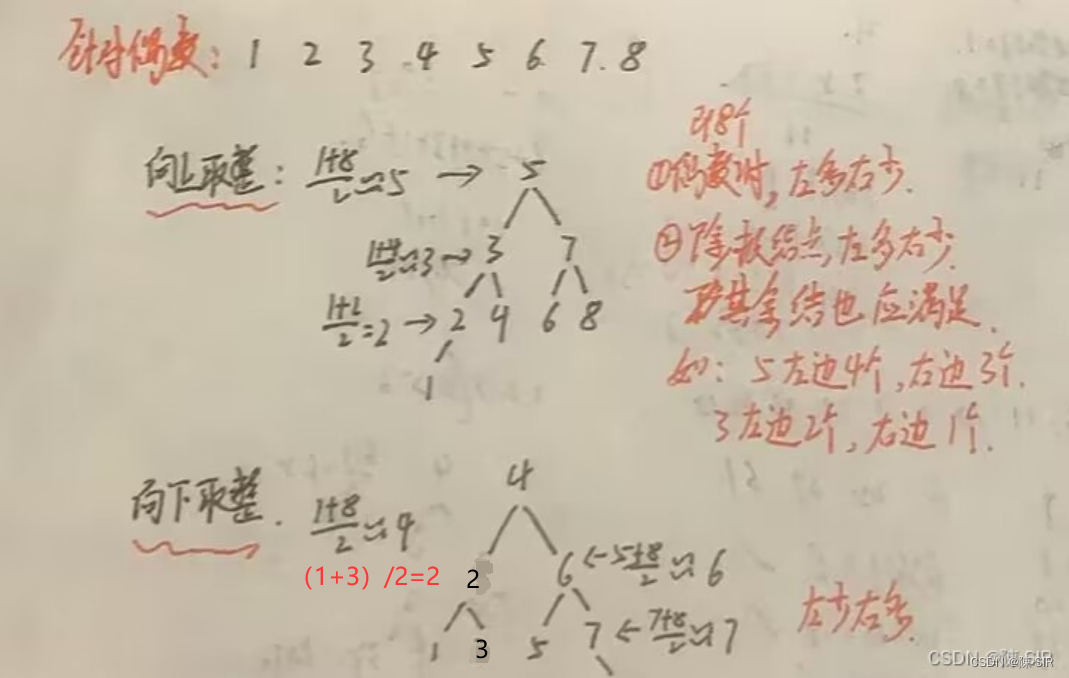 针对偶数: 1 2 3 4 5 6 7. 8
向上取整: (1+8)/2≈5 → 5
(1+4)/2≈3 → 3 7
(1+2)/2=2 → 2 4 6 8
1
8个
①偶数时,左多右少.
②除根结点,左多右少.
其余结也应满足.
如: 5左边4个,右边3个.
3左边2个,右边1个.
向下取整. (1+8)/2≈4 4
(1+3) /2=2 2 6 ←(5+8)/2≈6
1 3 5 7 ←(7+8)/2≈7
左少右多.
CSDN @陈SIR